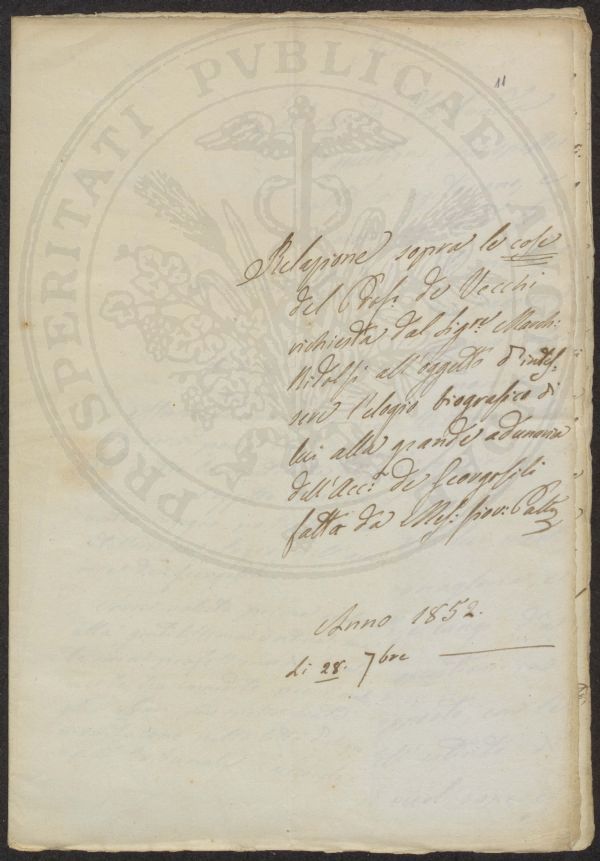 11
PROSPERITATI PVBLICAE
Relazione sopra le cose
del Prof. de Vecchi
richiesta dal Sigre. March:
Ridolfi all'oggetto d'intes-
sere l'elogio biografico di
lui alla grande adunanza
dell'Acc.a de Georgofili
fatta da Giov:
Anno 1852.
di 28. 7bre